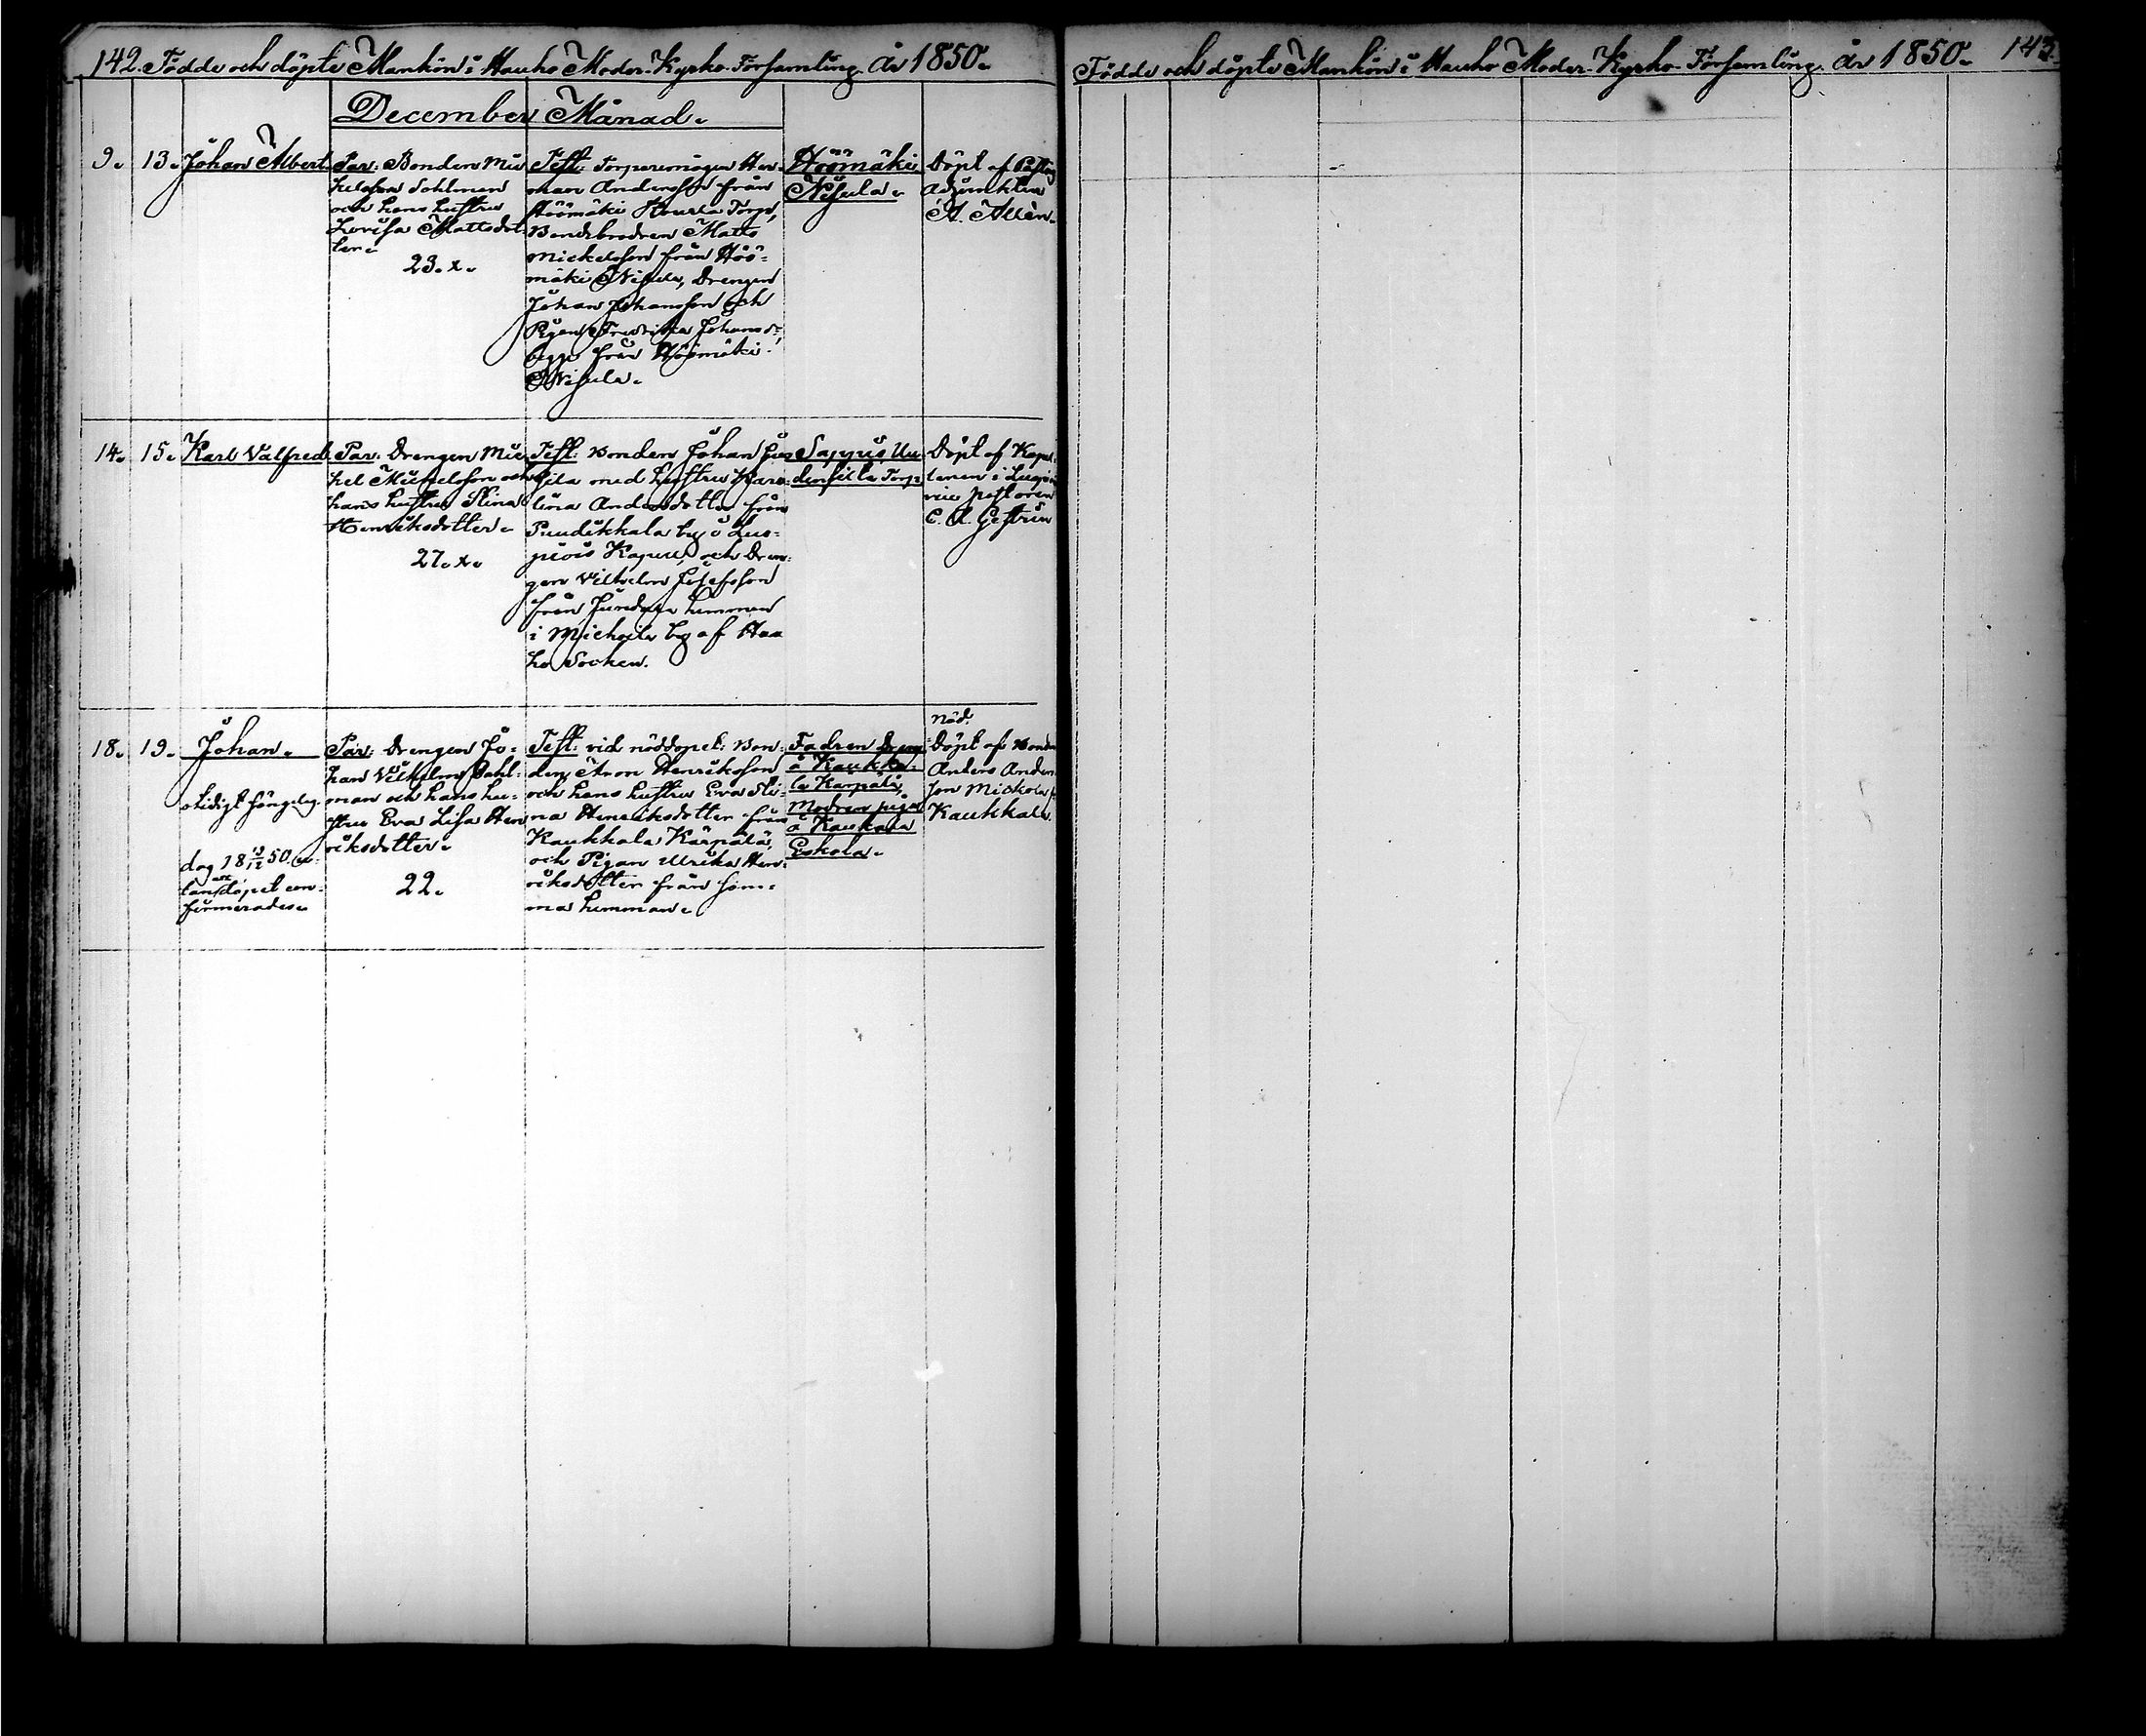 142. Födde och döpte Mankön i Hauho Moder-Kyrko-Församling År 1850.
December Månad.
9. 13. Johan Albert
Par: Bonden Mic
helsson Dahlman
och hans hustru
Lovisa Mattsdot
ter.
23. x.
Test: Torparemågen Her
man Andersson från
Höömäki Torp,
Bondebrodren Matts
Mickelsson från Höö-
mäki Nisula, Drengen
Johan Johansson och
Pigan Fredrika Johansdr
begge från Höömäki
Nisula.
Höömäki
Nisula.
Döpt af Past
Adjunkten
A. Allén.
14. 15. Karl Valfred
Par: Drengen Mic
hel Mickelsson och
hans hustru Stina
Henriksdotter.
27. x.
Test: Bonden Johan
med hustru Karo-
lina Andersdotter från
Puudikkala by i Luo-
piois Kapell, och Dren-
gen Vilhelm Josefsson
från hemman
i by af Hau
ho Socken.
Sappis Uu
Torp.
Döpt af Kapel-
lanen i Luopiois
vice pastoren
C. A. Gestrin
18. 19. Johan.
otidigt
dag 18 19/12 50
döpet con-
firmerades.
Par: Drengen Jo-
han Vilhelm Dahl-
man och hans hu-
stru Eva Lisa Hen
riksdotter.
22.
Test: vid nöddopet: Bon-
den Aron Henriksson
och hans hustru Eva Sti-
na Henriksdotter från
Kaukkala Kärpälä,
och Pigan Ulrika Hen-
riksdotter från sam-
ma hemman.
Fadren Dreng
å Kaukka-
la Kärpälä,
Modren piga
å Kaukkala
Eskola.
Nöd.
Döpt af Bonden
Anders Anders
son Mickola fr
Kaukkala.
Födde och döpte Mankön i Hauho Moder-Kyrko-Församling År 1850. 143.